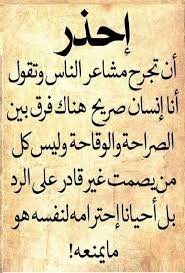 إحذر
أن تجرح مشاعر الناس وتقول
أنا إنسان صريح هناك فرق بين
الصراحة والوقاحة وليس كل
من يصمت غير قادر على الرد
بل أحيانا إحترامه لنفسه هو
مايمنعه!